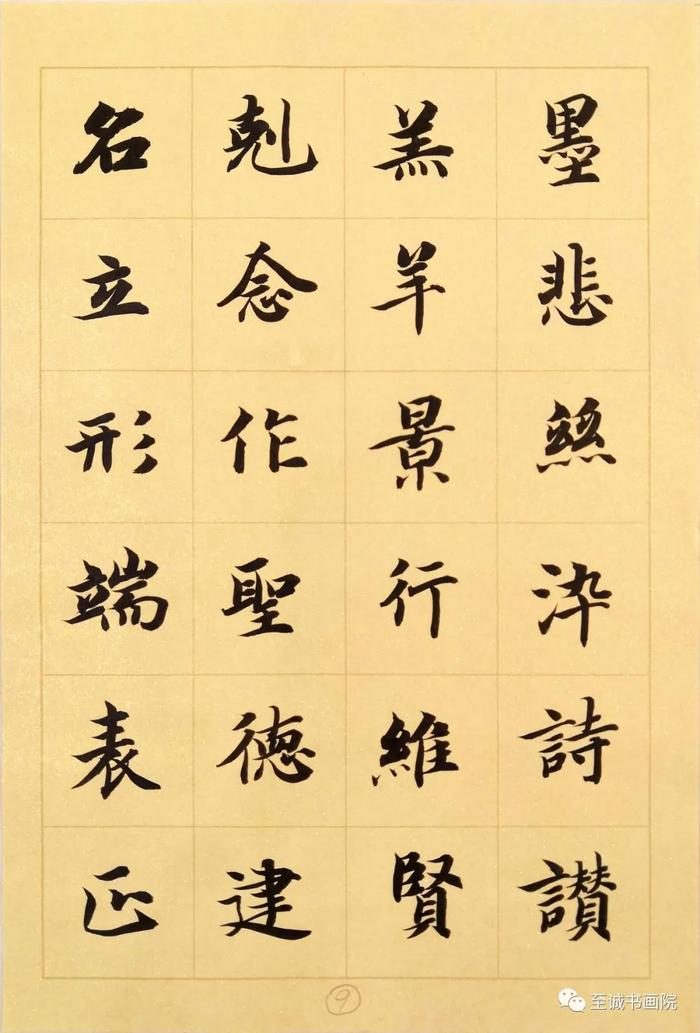 墨悲絲染詩讃
羔羊景行維賢
剋念作聖德建
名立形端表正
9
至诚书画院